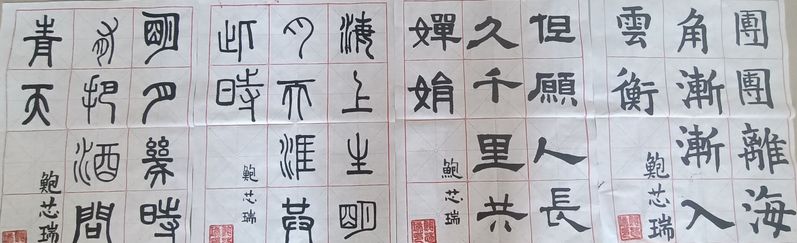 團團離海
角漸漸入
雲衡
鮑芯瑞
但願人長
久千里共
嬋娟
鮑芯瑞
海上生明
月天涯共
此時
鮑芯瑞
明月幾時
有把酒問
青天
鮑芯瑞